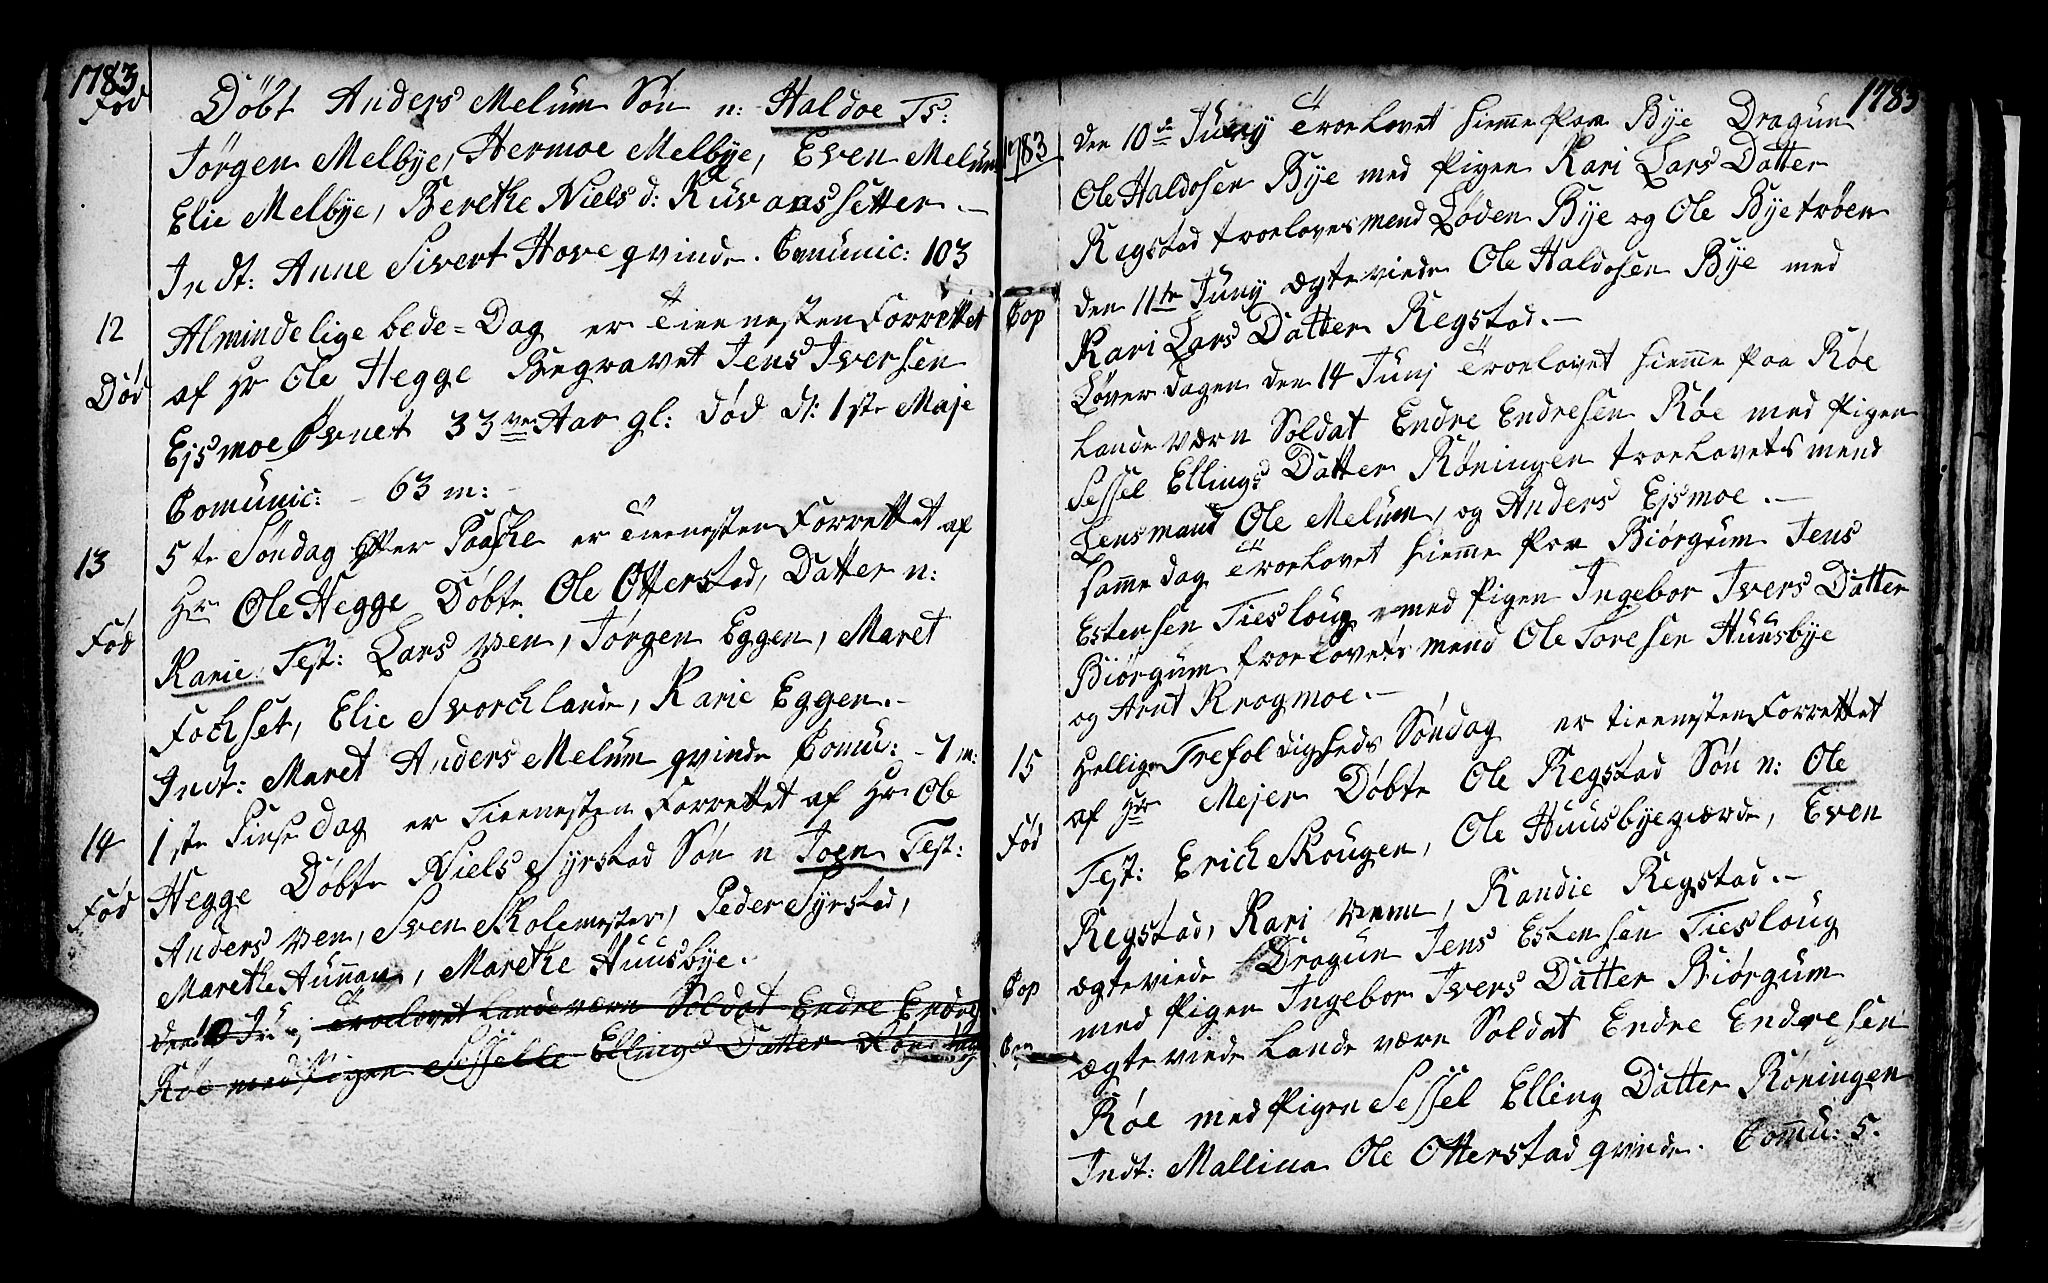 1783
Fød
Døbt Anders Melum Søn n: Haldoe Ts:
Jørgen Melbye, Hermoe Melbye, Even Melum
Elie Melbye, Berethe Niels d: Ruvaassetter.
Indt: Anne Sivert Hove qvinde. Comunic: 103
12
Almindelige bede=Dag er Tienesten Forrettet
Død
af Hr Ole Hegge Begravet Jens Iversen
Ejsmoe Øvnet 33 Aar gl: død d: 1ste Maje
Comunic: - 63 m:
13
5te Søndag efter Paaske er Tienesten Forrettet af
Hr Ole Hegge Døbte Ole Otterstad, Datter n:
Fød
Karie. Test: Lars Vien, Jørgen Eggen, Maret
Fochset, Elie Svorchlande, Karie Eggen.-
Indt: Maret Anders Melum qvinde Comu: - 7 m:
14
1ste Pinse Dag er Tienesten Forrettet af Hr Ole
Fød
Hegge Døbte Niels Syrstad Søn n Joen Test:
Anders Vien, Sven Skolemester, Peder Syrstad,
Marethe Aunnan, Marethe Huusbye.
den 10 Troelovet Landeværn Soldat Endre Endres
Røe med Pigen Sesselle Ellings Datter
1783
1783
den 10de Juny Troelovet hiemme paa Bye Dragun
Ole Haldosen Bye med Pigen Kari Lars Datter
Regstad troeloves mend Løden Bye og Ole Byetrøen
Cop
den 11te Juny ægteviede Ole Haldosen Bye med
Kari Lars Datter Regstad.-
Løverdagen den 14 Junj Troelovet hiemme paa Røe
Lande værn Soldat Endre Endresen Røe med Pigen
Sessel Ellings Datter Røningen troelovets mend
Lensmand Ole Melum, og Anders Ejsmoe.-
samme dag Troelovet hiemme paa Biørgum Jens
Estensen Tiesloug med Pigen Ingebor Ivers Datter
Biørgum troelovets mend Ole Toresen Huusbye
og Arnt Krogmoe.-
15
Hellige Trefoldigheds Søndag er tienesten Forrettet
af Hr Mejer Døbte Ole Regstad Søn n: Ole
Fød
Test: Erich Skougen, Ole Huusbyegierde, Even
Regstad, Kari Venn, Randie Regstad.-
Cop
ægteviede Dragun Jens Estensen Tiesloug
med Pigen Ingebor Ivers Datter Biørgum
Cop
ægte viede Lande værn Soldat Endre Endresen
Røe med Pigen Sessel Elling Datter Røningen
Indt: Mallina Ole Otterstad qvinde. Comu: 5.